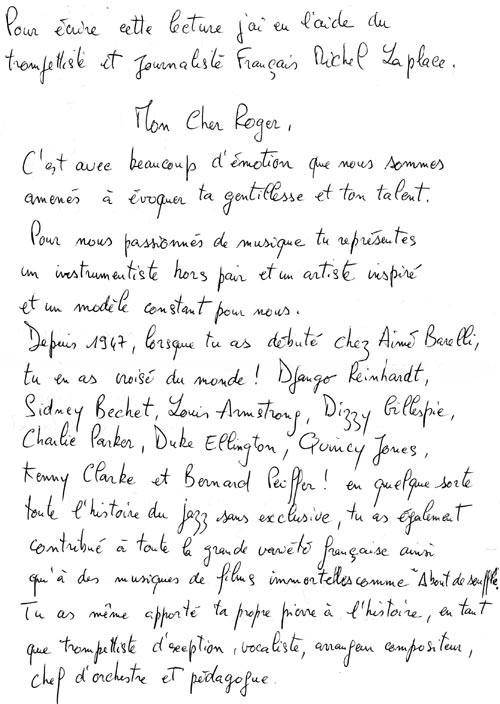 Pour écrire cette lecture j'ai eu l'aide du
trompettiste et Journaliste Français Michel Laplace.
Mon Cher Roger,
C'est avec beaucoup d'émotion que nous sommes
amenés à évoquer ta gentillesse et ton talent.
Pour nous passionnés de musique tu représentes
un instrumentiste hors pair et un artiste inspiré
et un modèle constant pour nous.
Depuis 1947, lorsque tu as débuté chez Aimé Barelli,
tu en as croisé du monde ! Django Reinhardt,
Sidney Bechet, Louis Armstrong, Dizzy Gillespie,
Charlie Parker, Duke Ellington, Quincy Jones,
Kenny Clarke et Bernard Peiffer ! en quelque sorte
toute l'histoire du jazz sans exclusive, tu as également
contribué à toute la grande variété française ainsi
qu'à des musiques de films immortelles comme "A bout de souffle".
Tu as même apporté ta propre pierre à l'histoire, en tant
que trompettiste d'exeption, vocaliste, arrangeur compositeur,
chef d'orchestre et pédagogue.